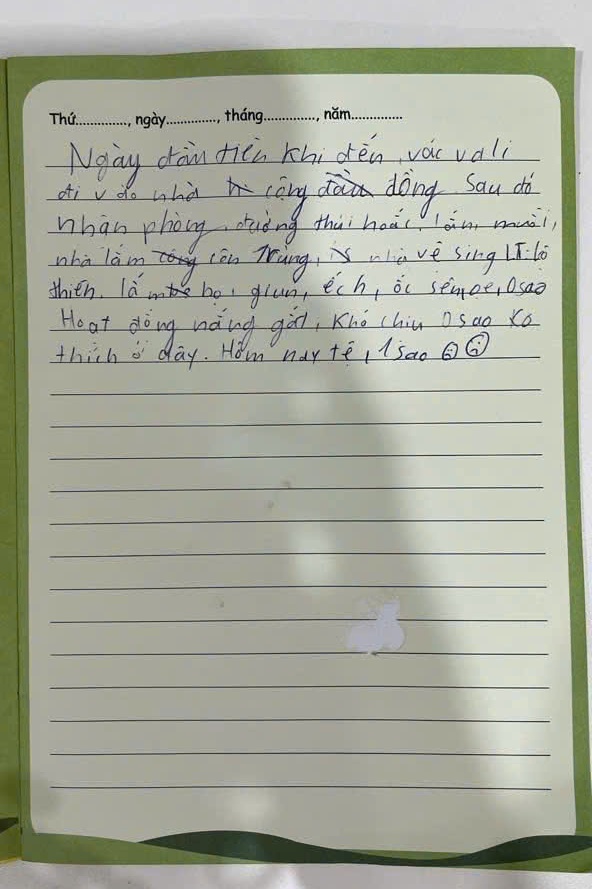 Thứ.............., ngày.............., tháng.............., năm..............
Ngày đầu tiên khi đến, vác vali
đi vào nhà cộng đồng. Sau đó
nhận phòng, đường thúi hoắc, lắm muỗi,
nhà lắm côn trùng, nhà vệ sing lộ
thiên, lắm bọ, giun, ếch, ốc sên, 0 sao
Hoạt động nắng gắt, khó chịu 0 sao Ko
thích ở đây. Hôm nay tệ, 1 sao